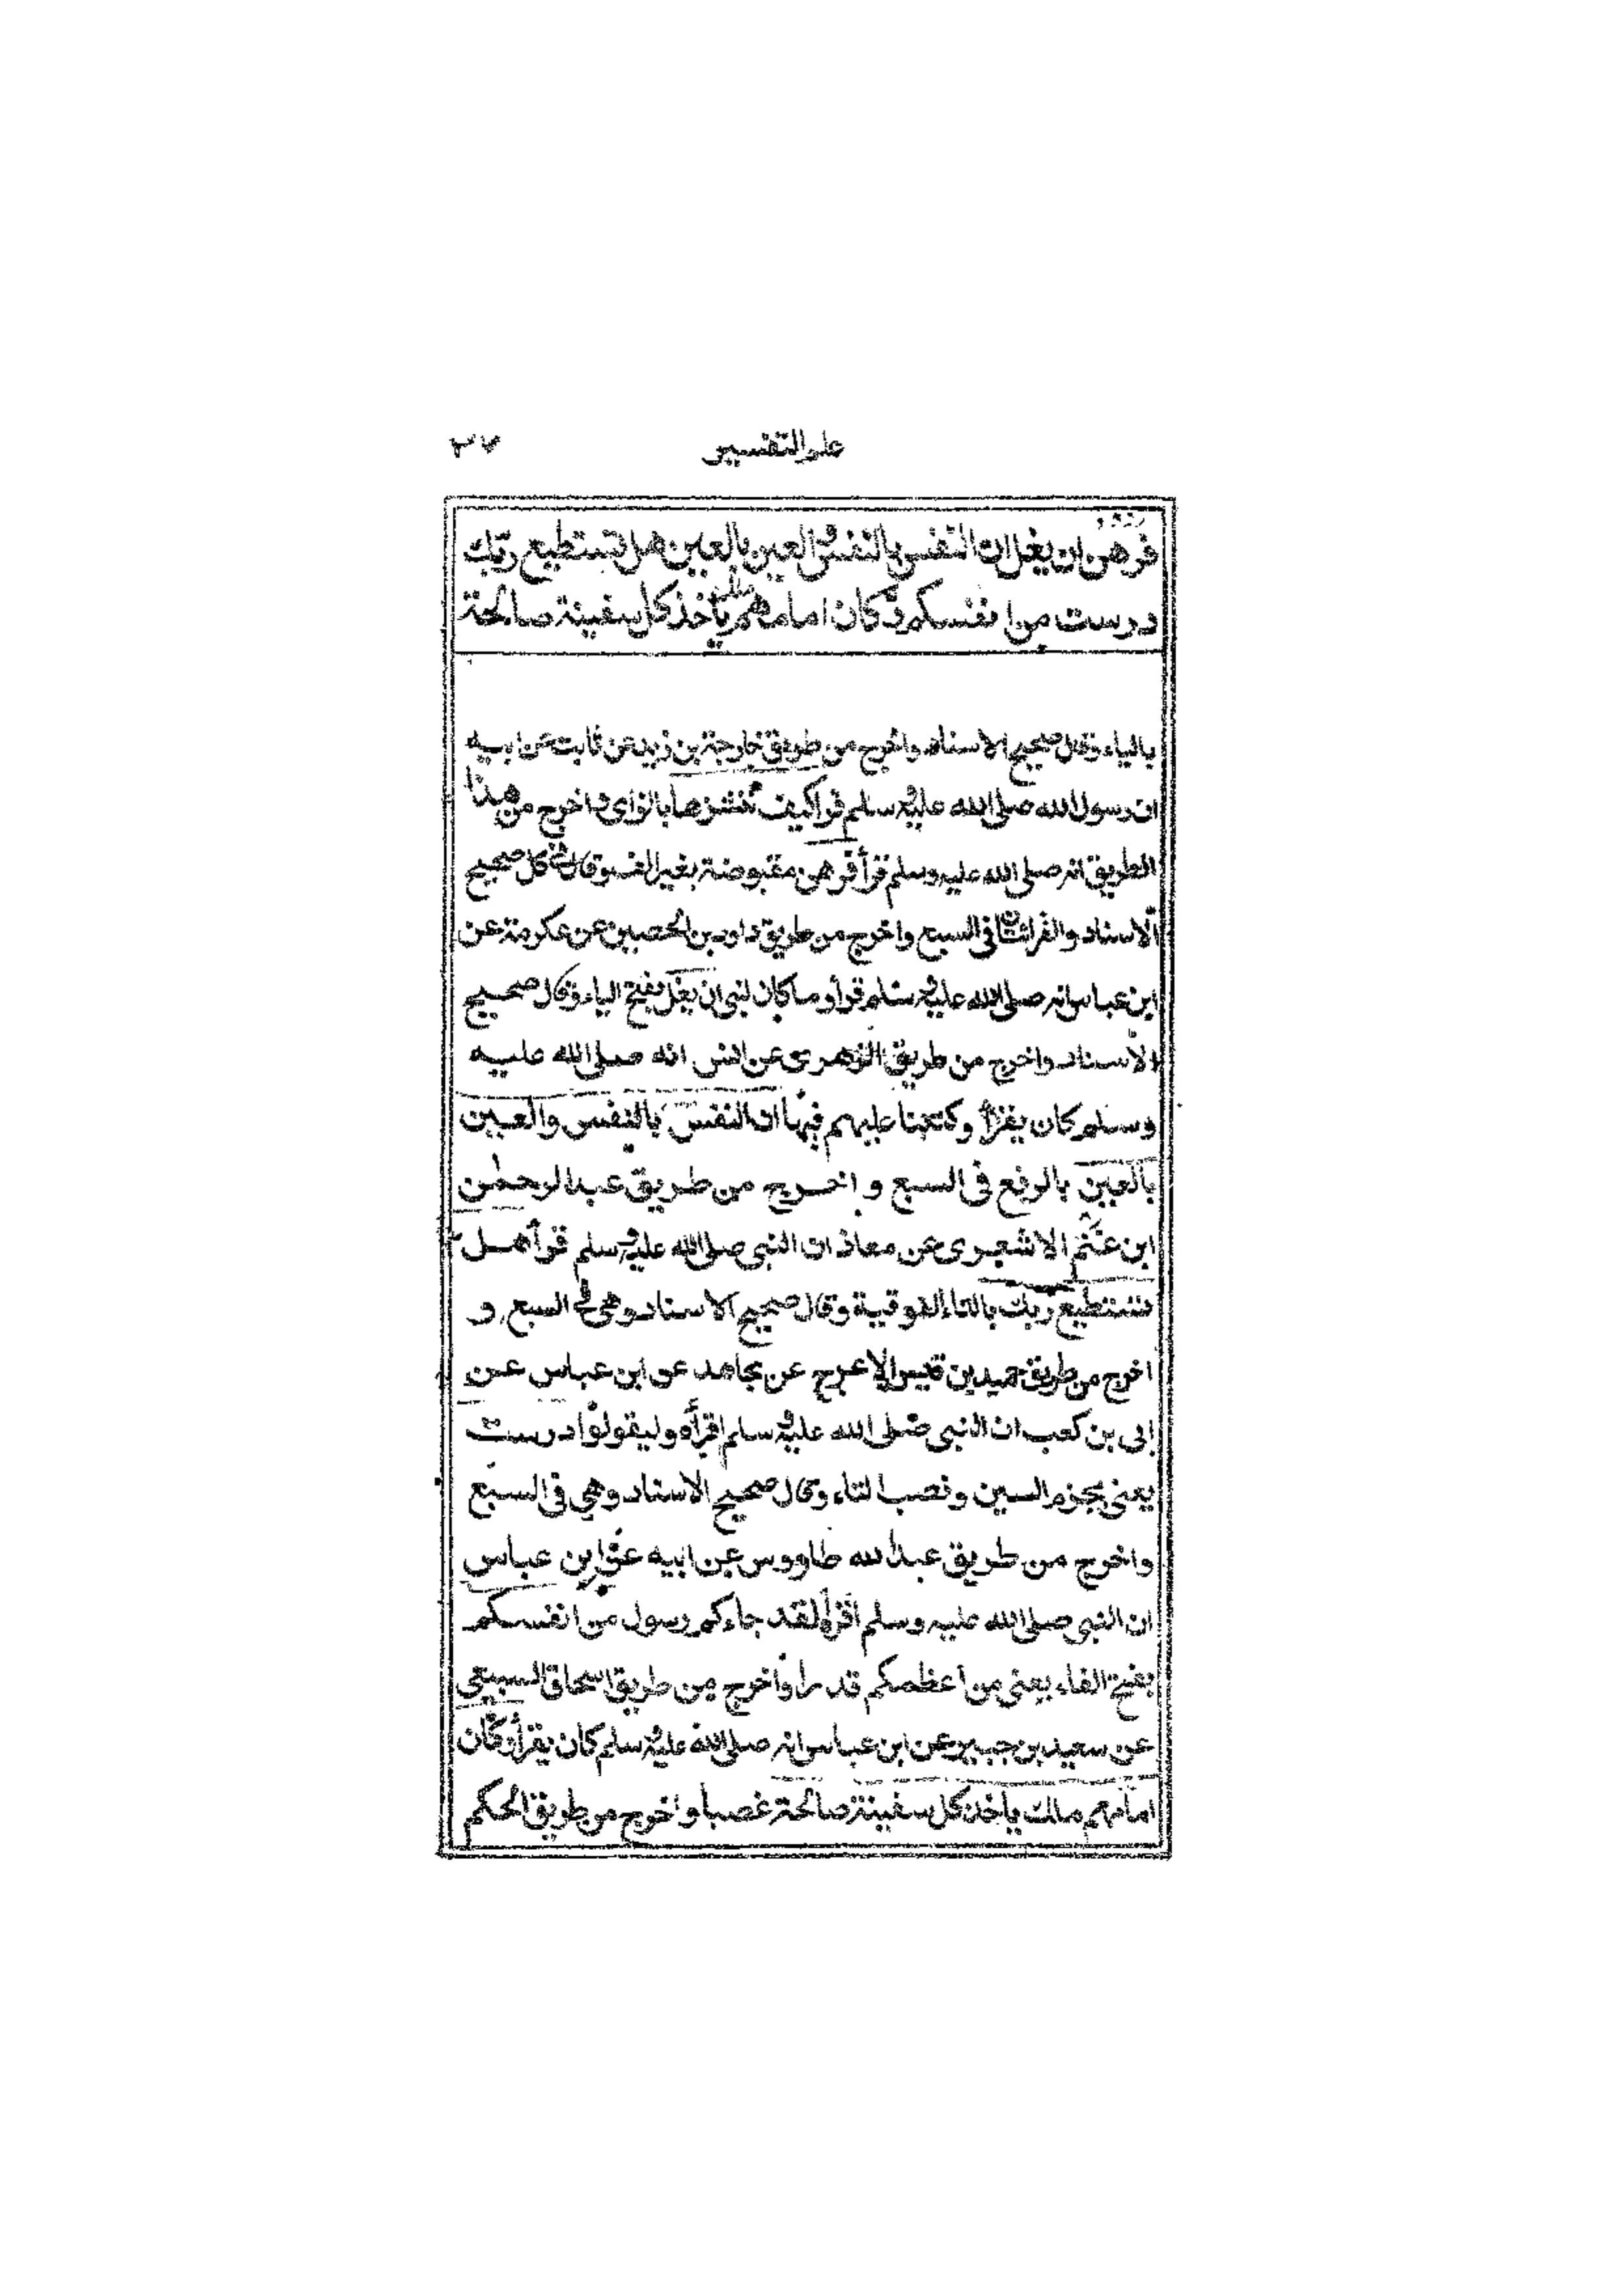 علم التفسير ٣٧
فرهن ان يغل ان النفس بالنفس والعين بالعين هل تستطيع ربك
درست من انفسكم وكان امامهم ملك يأخذ كل سفينة صالحة
بالياء وقال صحيح الاسناد واخرج من طريق خارجة بن زيد عن ثابت عن ابيه
ان رسول الله صلى الله عليه وسلم قرا كيف ننشزها بالزاى واخرج من هذا
الطريق انه صلى الله عليه وسلم قرأ فرهن مقبوضة بغير الف وقال كل صحيح
الاسناد والقرائتان فى السبع واخرج من طريق داود بن الحصين عن عكرمة عن
ابن عباس انه صلى الله عليه وسلم قرأ وما كان لنبى ان يغل بفتح الياء وقال صحيح
الاسناد واخرج من طريق الزهرى عن انس انه صلى الله عليه
وسلم كان يقرأ وكتبنا عليهم فيها ان النفس بالنفس والعين
بالعين بالرفع فى السبع و اخرج من طريق عبد الرحمٰن
ابن غنم الاشعرى عن معاذ ان النبى صلى الله عليه وسلم قرأ هل
تستطيع ربك بالتاء الفوقية وقال صحيح الاسناد وهى فى السبع و
اخرج من طريق حميد بن قيس الاعرج عن مجاهد عن ابن عباس عن
ابى بن كعب ان النبى صلى الله عليه وسلم اقرأه وليقولوا درست
يعنى بجزم السين ونصب التاء وقال صحيح الاسناد وهى فى السبع
واخرج من طريق عبد الله طاووس عن ابيه عن ابن عباس
ان النبى صلى الله عليه وسلم اقرأ لقد جاءكم رسول من انفسكم
بفتح الفاء يعنى من اعظمكم قدرا واخرج من طريق اسحاق السبيعى
عن سعيد بن جبير عن ابن عباس انه صلى الله عليه وسلم كان يقرأ وكان
امامهم ملك يأخذ كل سفينة صالحة غصبا واخرج من طريق الحكم